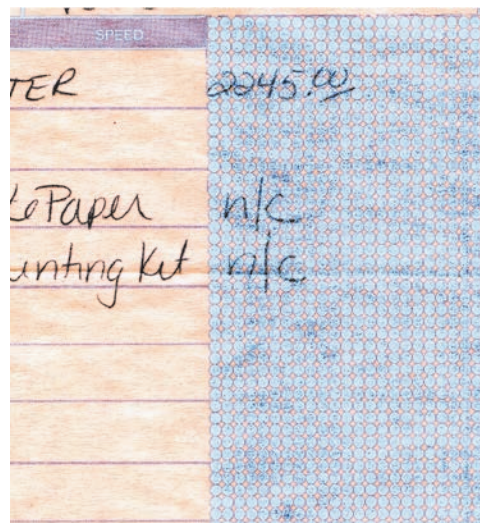 SPEED
TER 2245.00
Paper n/c
unting Kit n/c